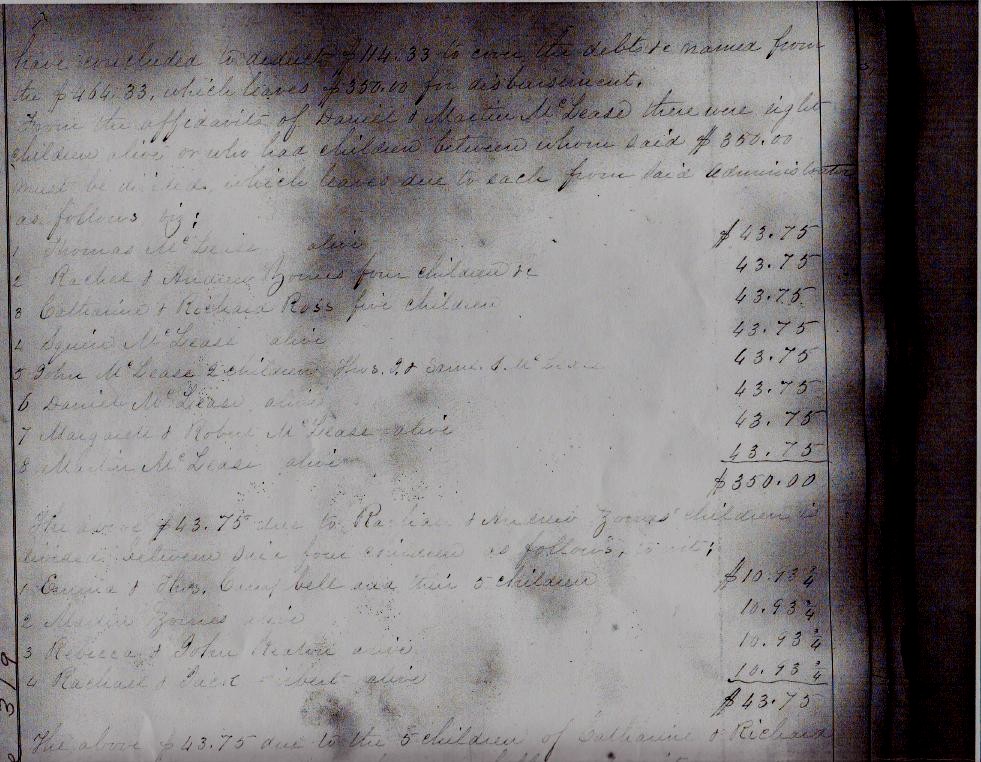 have concluded to deduct $114.33 to cover the debts &c named from
the $464.33, which leaves $350.00 for disbursement.
From the affidavits of Daniel & Martin McLease there were eight
children alive or who had children between whom said $350.00
must be divided, which leaves due to each from said Administrator
as follows viz:
1 Thomas McLease alive $43.75
2 Rachel & Andrew Zornes four children &c 43.75
3 Catharine & Richard Ross five children 43.75
4 Squire McLease alive 43.75
5 John McLease 2 children Thos. J. & McLease 43.75
6 Daniel McLease alive 43.75
7 Margarett & Robert McLease alive 43.75
8 Martin McLease alive 43.75
$350.00
The above $43.75 due to Rachael & Andrew Zornes' children is
divided between their four children as follows, to wit;
1 Emma & Thos. Campbell and their 5 children $10.93 3/4
2 Martin Zornes alive 10.93 3/4
3 Rebecca & John alive 10.93 3/4
4 Rachael & Jack alive 10.93 3/4
$43.75
The above $43.75 due to the 5 children of Catharine & Richard
319